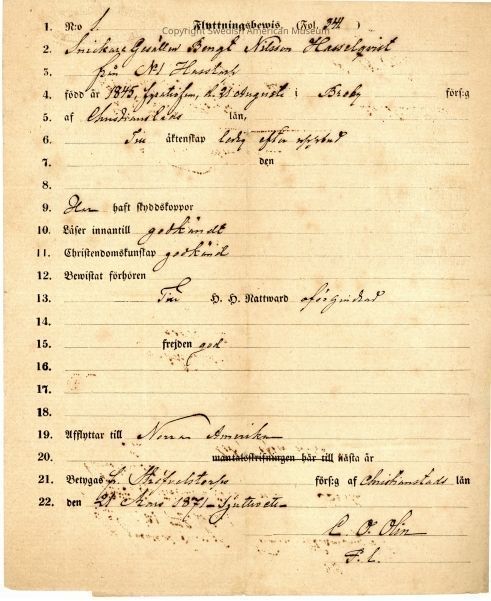 Copyright Swedish American Museum
1. N:o 1. Flyttningsbewis (Fol. 24)
2. Snickare Gesällen Bengt Nilsson Hasselqvist
3. från N1
4. född år 1845, fyratiofem, d. 21 Augusti i Broby förs:g
5. af Christianstads län,
6. Till äktenskap ledig efter
7. den
8.
9. Har haft skyddskoppor
10. Läser innantill godkändt
11. Christendomskunskap godkänd
12. Bewistat förhören
13. Till H. H. Nattward oförhindrad
14.
15. frejden god
16.
17.
18.
19. Afflyttar till Norra Amerika
20. mantalsskrifningen här till nästa år
21. Betygas f. förs:g af Christianstads län
22. den 21 Mars 1871
C. O. Olin